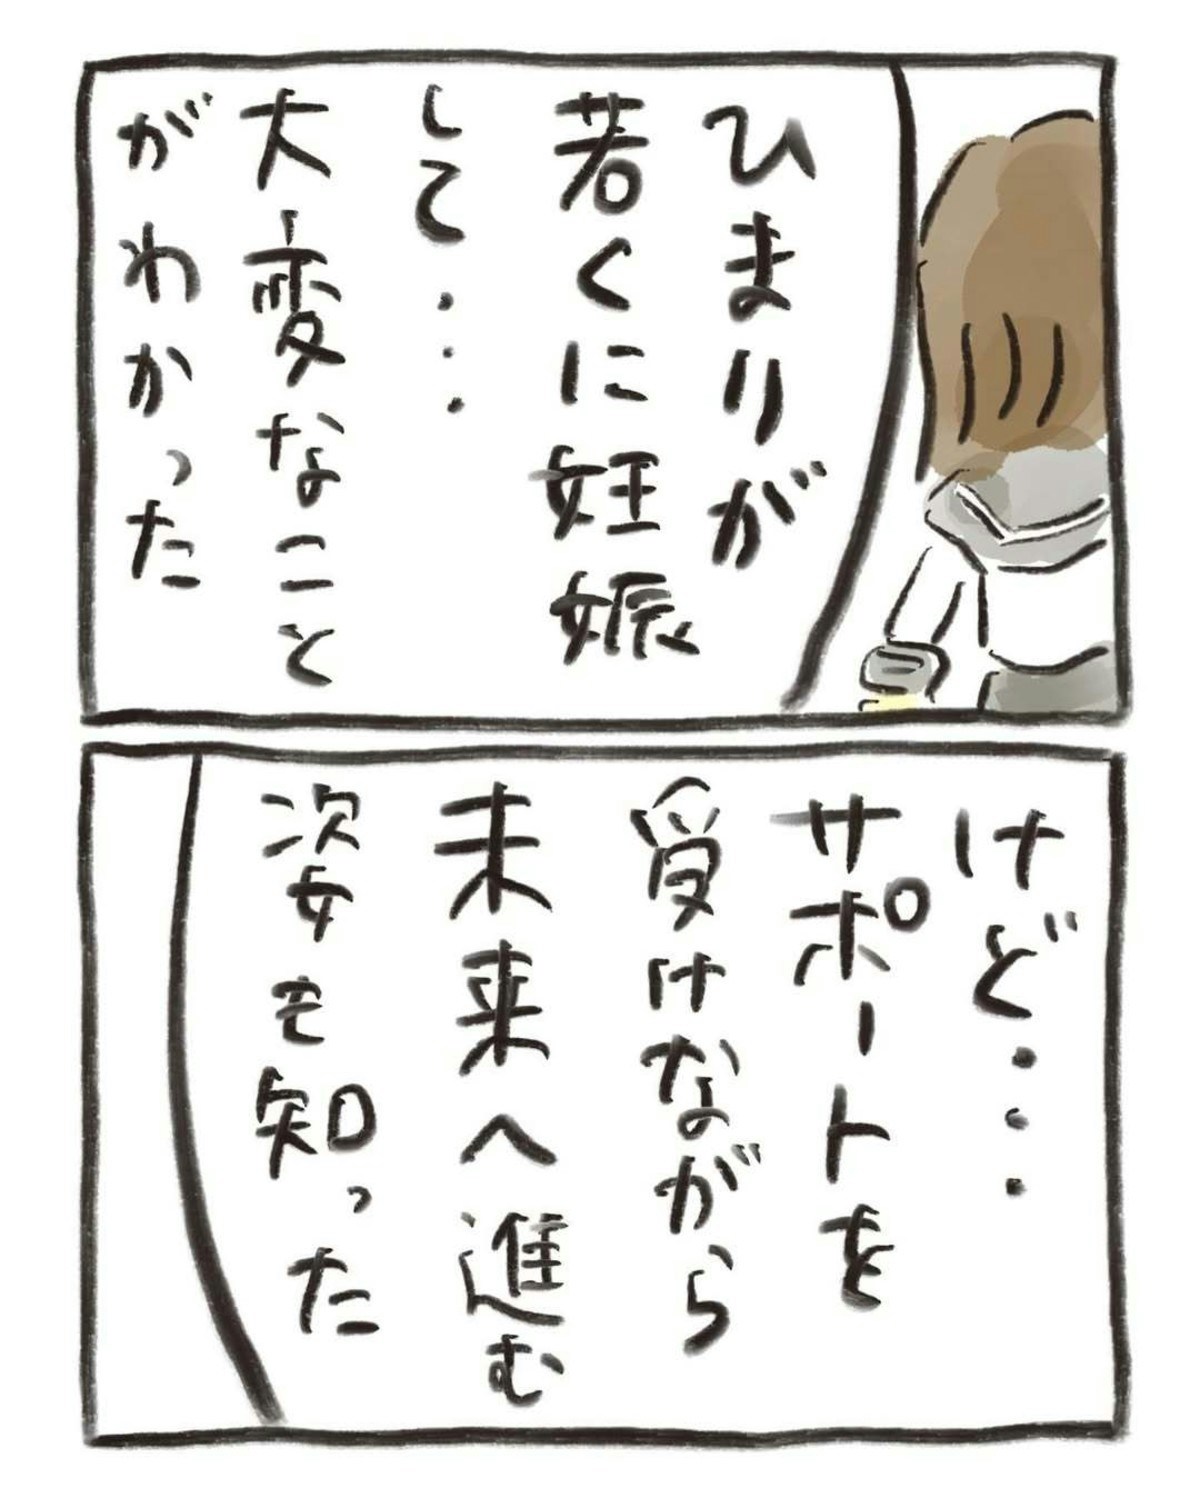 ひまりが
若くに妊娠
して・・・
大変なこと
がわかった
けど・・・
サポートを
受けながら
未来へ進む
姿も知った